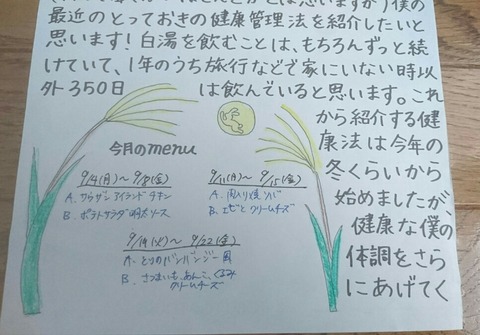 最近のとっておきの健康管理法を紹介したいと
思います!白湯を飲むことは、もちろんずっと続
けていて、1年のうち旅行などで家にいない時以
外350日は飲んでいると思います。これ
から紹介する健
康法は今年の
冬くらいから
始めましたが、
健康な僕の
体調をさら
にあげてく
今月のmenu
9/4(月)〜9/8(金)
A. サウザンアイランドチキン
B. ポテトサラダ明太ソース
9/11(月)〜9/15(金)
A. 肉入り焼ソバ
B. エビとクリームチーズ
9/19(火)〜9/22(金)
A. とりのバンバンジー風
B. さつまいも、あんこ、くるみ
クリームチーズ